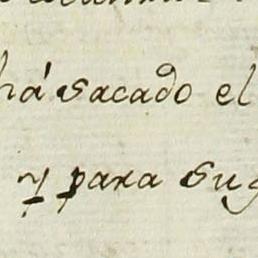 há sacado el
y para su